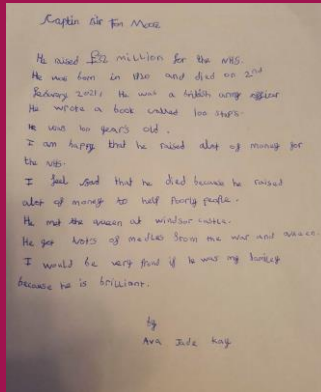 Captin sir Tom Moore
He raised £32 million for the NHS.
He was born in 1920 and died on 2nd
February 2021. He was a british army officer
He wrote a book called 100 steps.
He was 100 years old.
I am happy that he raised alot of money for
the NHS.
I feel sad that he died because he raised
alot of money to help poorly people.
He met the queen at windsor castle.
He got lots of medles from the war and queen.
I would be very proud if he was my
because he is brilliant.
by
Ava Jade Kay